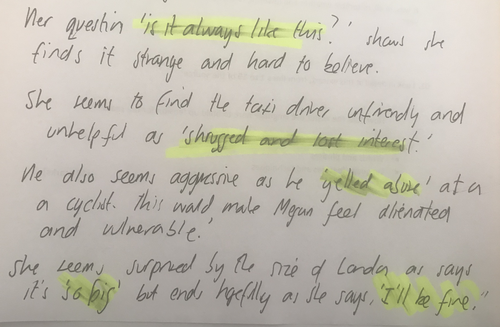 Her question 'is it always like this?' shows she
finds it strange and hard to believe.
She seems to find the taxi driver unfriendly and
unhelpful as 'shrugged and lost interest.'
He also seems aggressive as he 'yelled abuse' at a
a cyclist. This would make Megan feel alienated
and vulnerable.
She seems surprised by the size of London as says
it's 'so big' but ends hopefully as she says, 'I'll be fine."